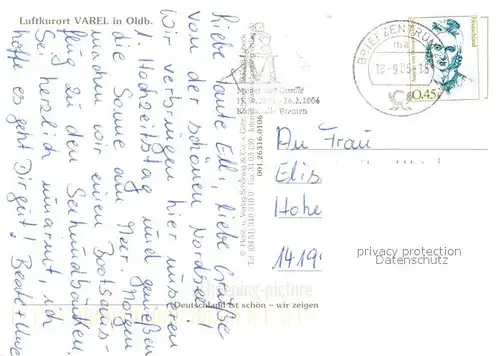 Luftkurort VAREL in Oldb.
Liebe Tante Elli, liebe Grüße
von der schönen Nordsee!
Wir verbringen hier unseren
1. Hochzeitstag und genießen
die Sonne am Meer. Morgen
machen wir einen Bootsaus-
flug zu den Seehundbänken.
Sei herzlich umarmt, ich
hoffe es geht Dir gut! Beate + Uwe
001.26316.0106
26.2.2006
Bremen
BRIEFZENTRUM
Deutschland
0.45€
An Frau
Elis
Hohe
1419
privacy protection
Datenschutz
Deutschland ist schön – wir zeigen